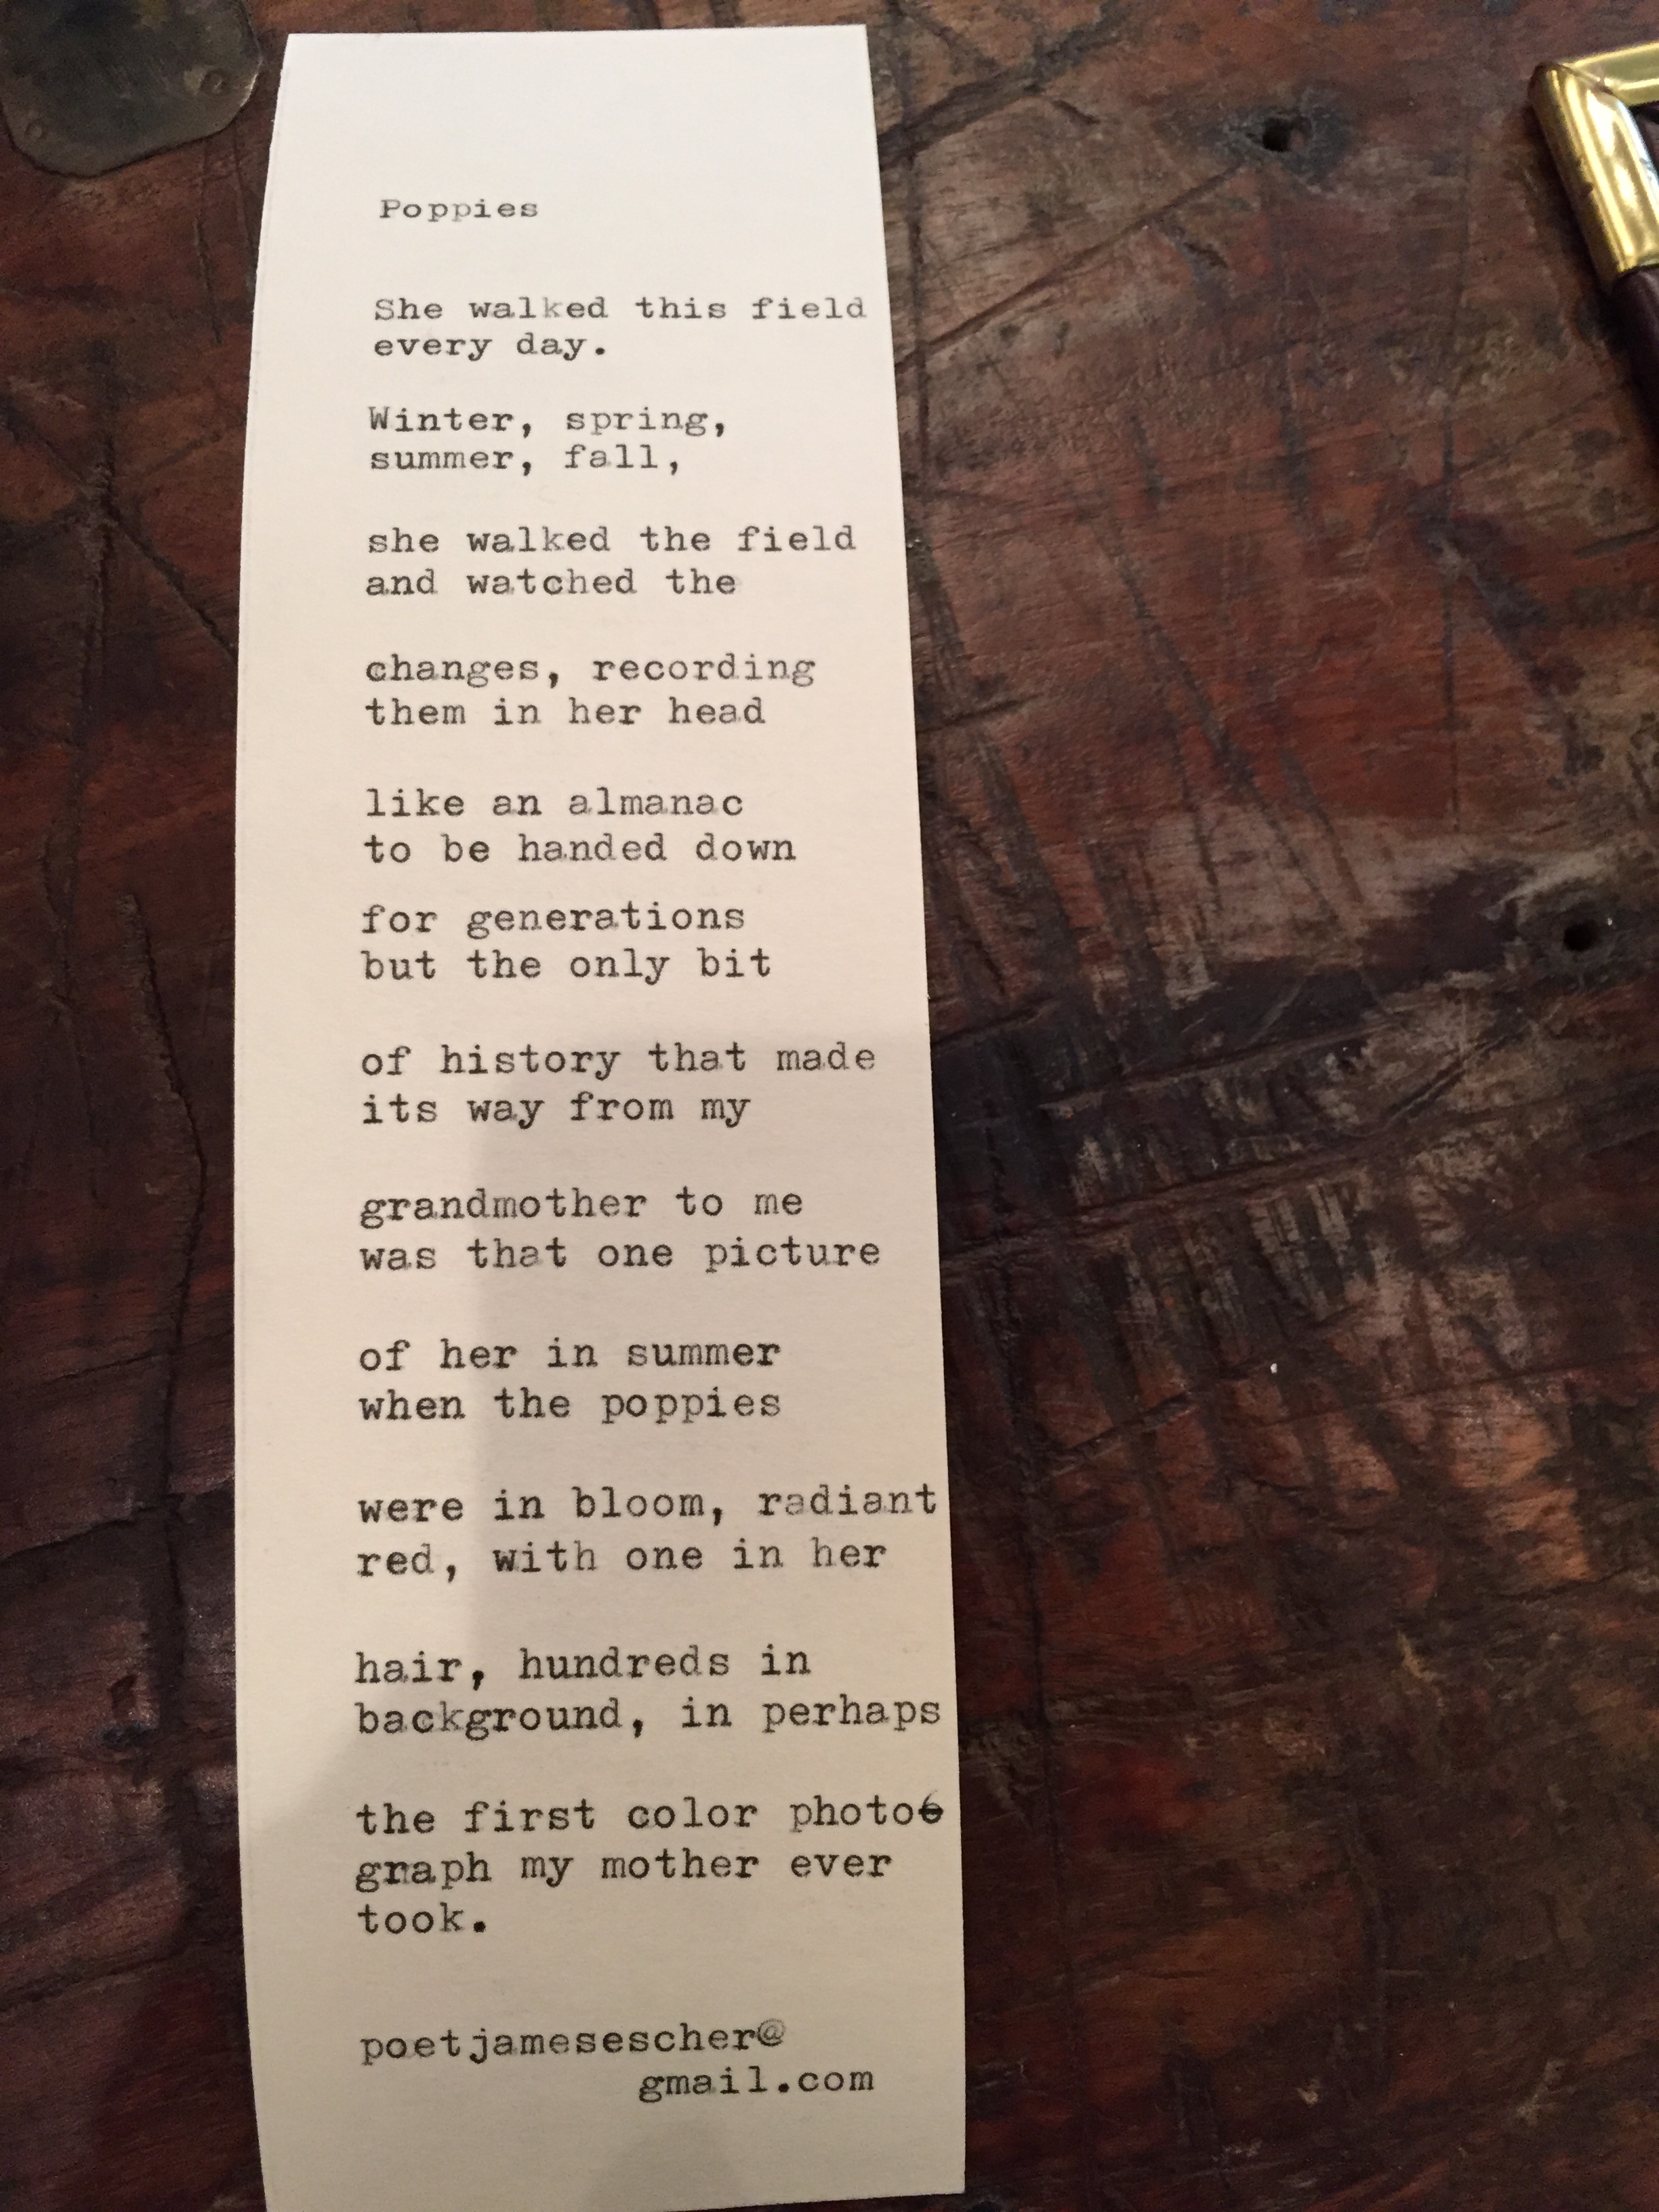 Poppies
She walked this field
every day.
Winter, spring,
summer, fall,
she walked the field
and watched the
changes, recording
them in her head
like an almanac
to be handed down
for generations
but the only bit
of history that made
its way from my
grandmother to me
was that one picture
of her in summer
when the poppies
were in bloom, radiant
red, with one in her
hair, hundreds in
background, in perhaps
the first color photo-
graph my mother ever
took.
poetjamesescher@
gmail.com